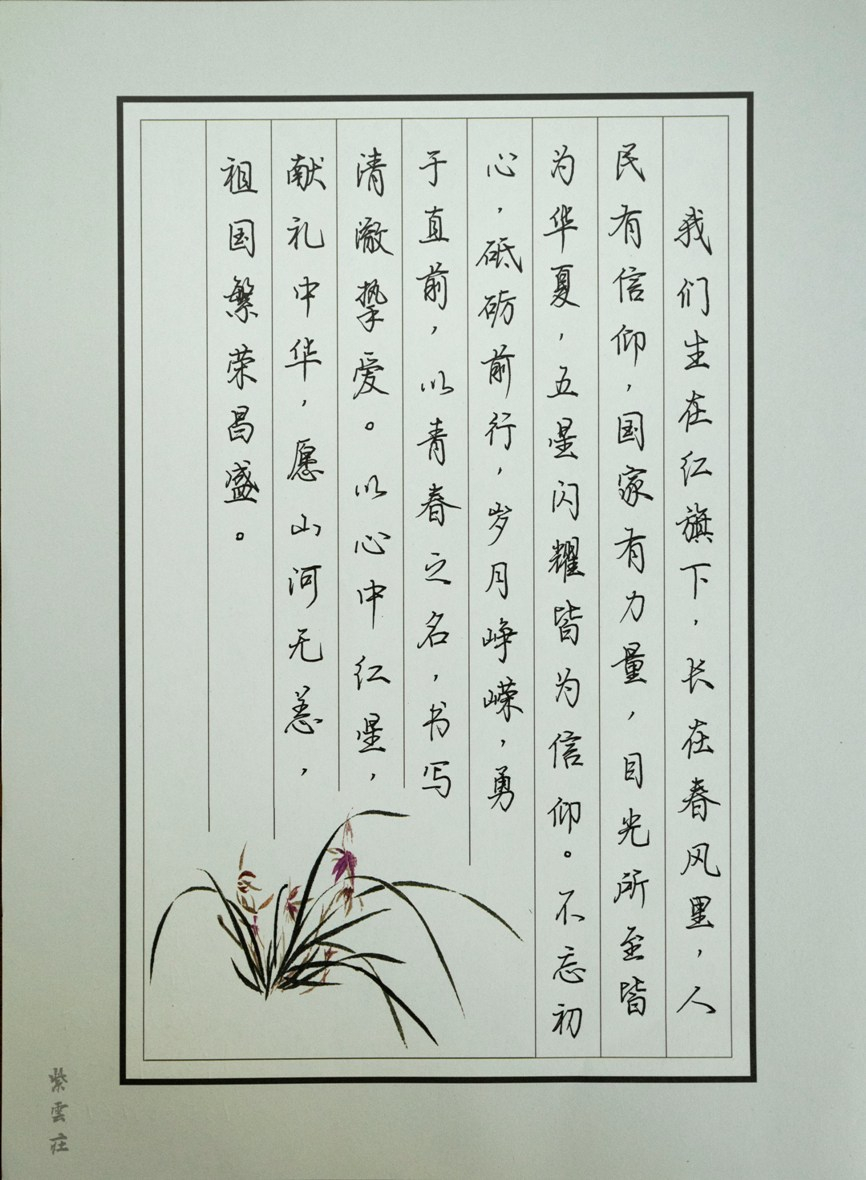 我们生在红旗下，长在春风里，人
民有信仰，国家有力量，目光所至皆
为华夏，五星闪耀皆为信仰。不忘初
心，砥砺前行，岁月峥嵘，勇
于直前，以青春之名，书写
清澈挚爱。以心中红星，
献礼中华，愿山河无恙，
祖国繁荣昌盛。
紫雲莊